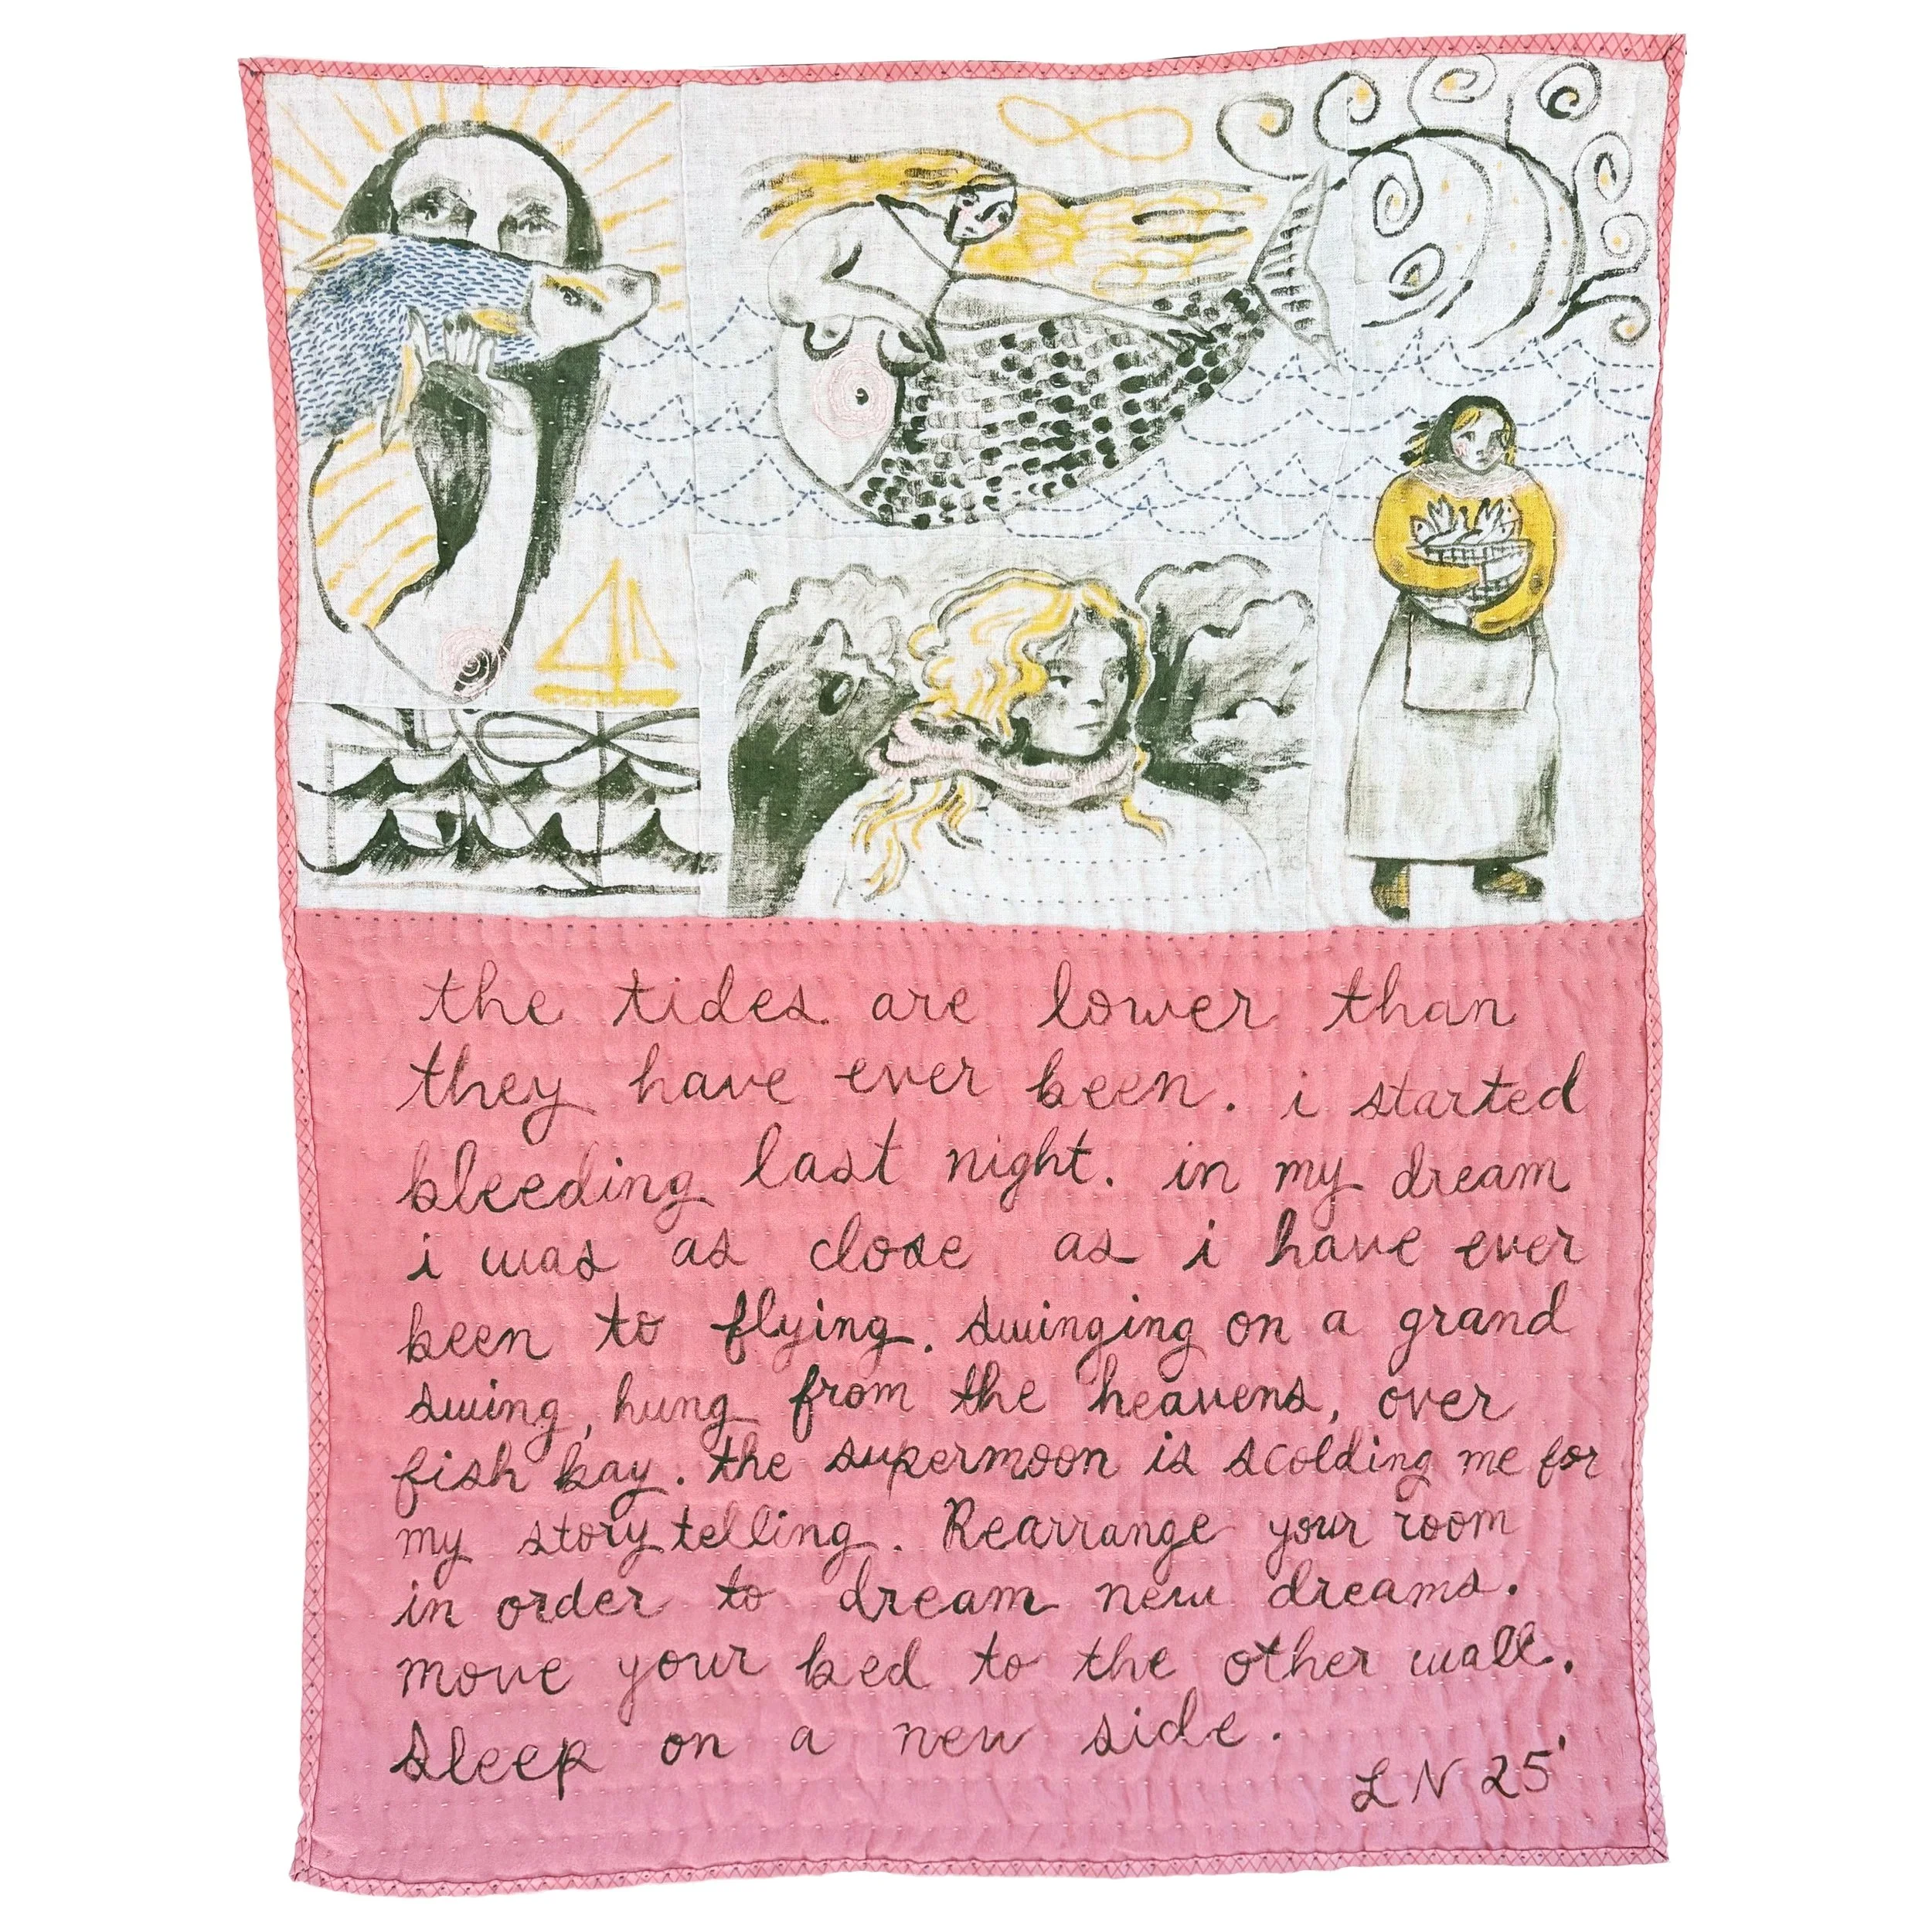 the tides are lower than
they have ever been. i started
bleeding last night. in my dream
i was as close as i have ever
been to flying. swinging on a grand
swing, hung from the heavens, over
fish bay. the supermoon is scolding me for
my story telling. Rearrange your room
in order to dream new dreams.
move your bed to the other wall.
Sleep on a new side.
LN 25'